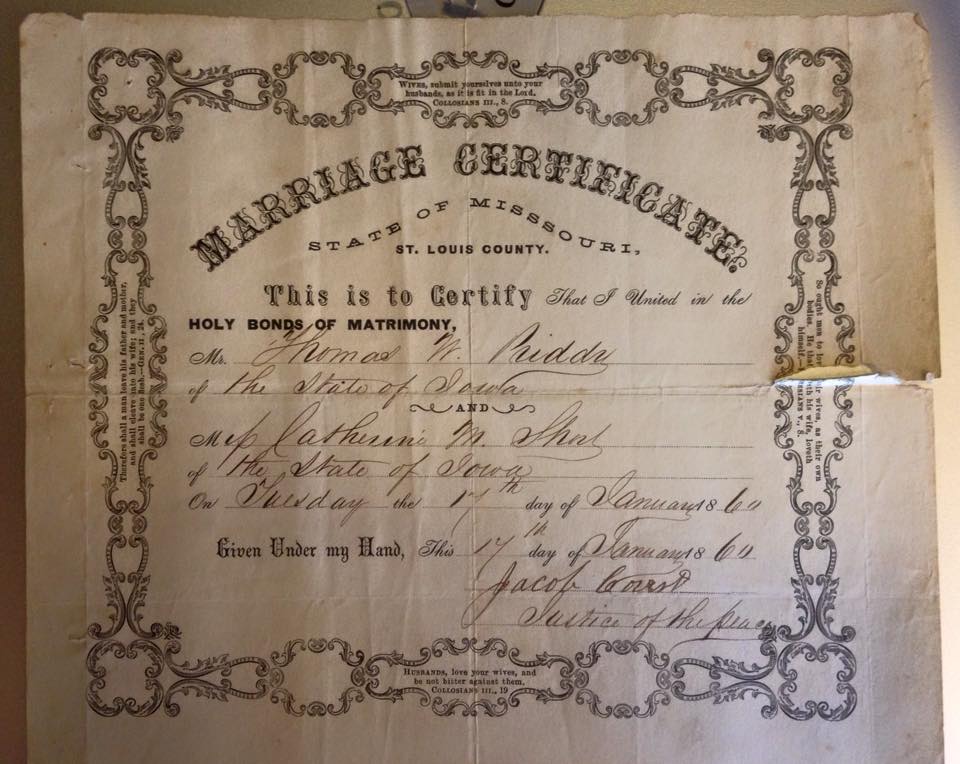 WIVES, submit yourselves unto your
husbands, as it is fit in the Lord.
COLLOSIANS III., 8.
MARRIAGE CERTIFICATE.
STATE OF MISSSOURI,
ST. LOUIS COUNTY.
This is to Certify That I United in the
HOLY BONDS OF MATRIMONY,
Mr. Thomas W. Priddy
of the State of Iowa
AND
Miss Catherine M.
of the State of Iowa
On Tuesday the 17th day of January 1860
Given Under my Hand, This 17th day of January 1860
Jacob
Justice of the Peace
Therefore shall a man leave his father and mother,
and shall cleave unto his wife; and they
shall be one flesh.—GEN. II, 24.
So ought men to love their wives, as their own
bodies. He that loveth his wife, loveth
himself.— V., 8.
HUSBANDS, love your wives, and
be not bitter against them.
COLLOSIANS III., 19